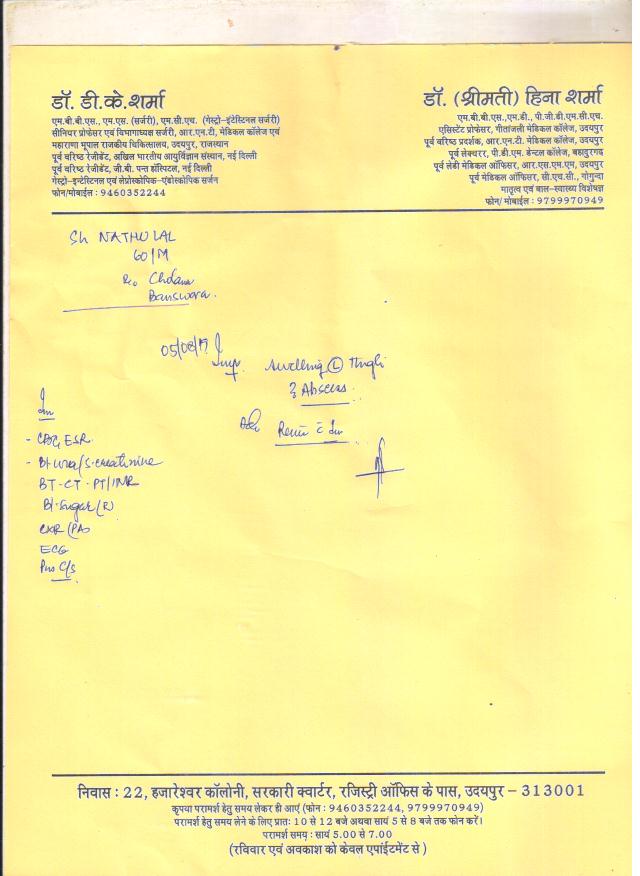 डॉ. डी.के.शर्मा
एम.बी.बी.एस., एम.एस. (सर्जरी), एम.सी.एच. (गेस्ट्रो-इंटेस्टिनल सर्जरी)
सीनियर प्रोफेसर एवं विभागाध्यक्ष सर्जरी, आर.एन.टी. मेडिकल कॉलेज एवं
महाराणा भूपाल राजकीय चिकित्सालय, उदयपुर, राजस्थान
पूर्व वरिष्ठ रेजीडेंट, अखिल भारतीय आयुर्विज्ञान संस्थान, नई दिल्ली
पूर्व वरिष्ठ रेजीडेंट, जी.बी. पन्त हॉस्पिटल, नई दिल्ली
गेस्ट्रो-इन्टेस्टिनल एवं लेप्रोस्कोपिक-एंडोस्कोपिक सर्जन
फोन/मोबाईल : 9460352244
डॉ. (श्रीमती) हिना शर्मा
एम.बी.बी.एस., एम.डी., पी.जी.डी.एम.सी.एच.
एसिस्टेंट प्रोफेसर, गीतांजली मेडिकल कॉलेज, उदयपुर
पूर्व वरिष्ठ प्रदर्शक, आर.एन.टी. मेडिकल कॉलेज, उदयपुर
पूर्व लेक्चरर, पी.डी.एम. डेन्टल कॉलेज, बहादुरगढ़
पूर्व लेडी मेडिकल ऑफिसर, आर.एस.एम.एम, उदयपुर
पूर्व मेडिकल ऑफिसर, सी.एच.सी., गोगुन्दा
मातृत्व एवं बाल-स्वास्थ्य विशेषज्ञ
फोन/ मोबाईल : 9799970949
Sh NATHULAL
60/M
Banswara.
Swelling (L) Thigh
Abscess
Adv
- CBC, ESR
- Bl urea/S. creatinine
BT-CT-PT/INR
Bl. Sugar (R)
CXR (PA)
ECG
Pus C/S
निवास : 22, हजारेश्वर कॉलोनी, सरकारी क्वार्टर, रजिस्ट्री ऑफिस के पास, उदयपुर – 313001
कृपया परामर्श हेतु समय लेकर ही आएं (फोन : 9460352244, 9799970949)
परामर्श हेतु समय लेने के लिए प्रातः 10 से 12 बजे अथवा सायं 5 से 8 बजे तक फोन करें।
परामर्श समय : सायं 5.00 से 7.00
(रविवार एवं अवकाश को केवल एपांईटमेंट से )